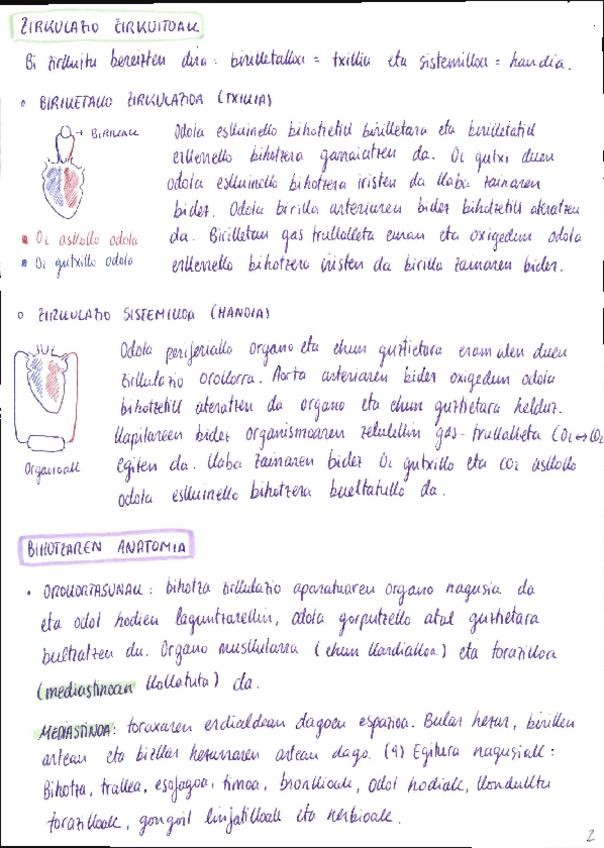 ZIRKULAZIO ZIRKUITOAK
Bi zirkuitu bereizten dira: biriketakoa = txikia eta sistemikoa = handia.
• BIRIKETAKO ZIRKULAZIOA (TXIKIA)
→ BIRIKAK
Odola eskuineko bihotzetik biriketara eta biriketatik
ezkerreko bihotzera garraiatzen da. O₂ gutxi duen
odola eskuineko bihotzera iristen da kaba zainaren
bidez. Odola birika arteriaren bidez bihotzetik ateratzen
da. Biriketan gas trukaketa eman eta oxigedun odola
ezkerreko bihotzera iristen da birika zainaren bidez.
O₂ askoko odola
O₂ gutxiko odola
• ZIRKULAZIO SISTEMIKOA (HANDIA)
Odola periferiako organo eta ehun guztietara eramaten duen
zirkulazio orokorra. Aorta arteriaren bidez oxigedun odola
bihotzetik ateratzen da organo eta ehun guztietara helduz.
Kapilareen bidez organismoaren zelulekin gas-trukaketa (O₂↔CO₂
egiten da. Kaba zainaren bidez O₂ gutxiko eta CO₂ askoko
odola eskuineko bihotzera bueltatuko da.
Organoak
BIHOTZAREN ANATOMIA
• OROKORTASUNAK: bihotza zirkulazio aparatuaren organo nagusia da
eta odol hodien laguntzarekin, odola gorputzeko atal guztietara
bultzatzen du. Organo muskularra (ehun kardiakoa) eta torazikoa
(mediastinoan kokatuta) da.
MEDIASTINOA: toraxaren erdialdean dagoen espazioa. Bular hezur, biriken
artean eta bizkar hezurraren artean dago. (9) Egitura nagusiak:
Bihotza, trakea, esofagoa, timoa, bronkioak, odol hodiak, konduktu
torazikoak, gongoil linfatikoak eta nerbioak.
2